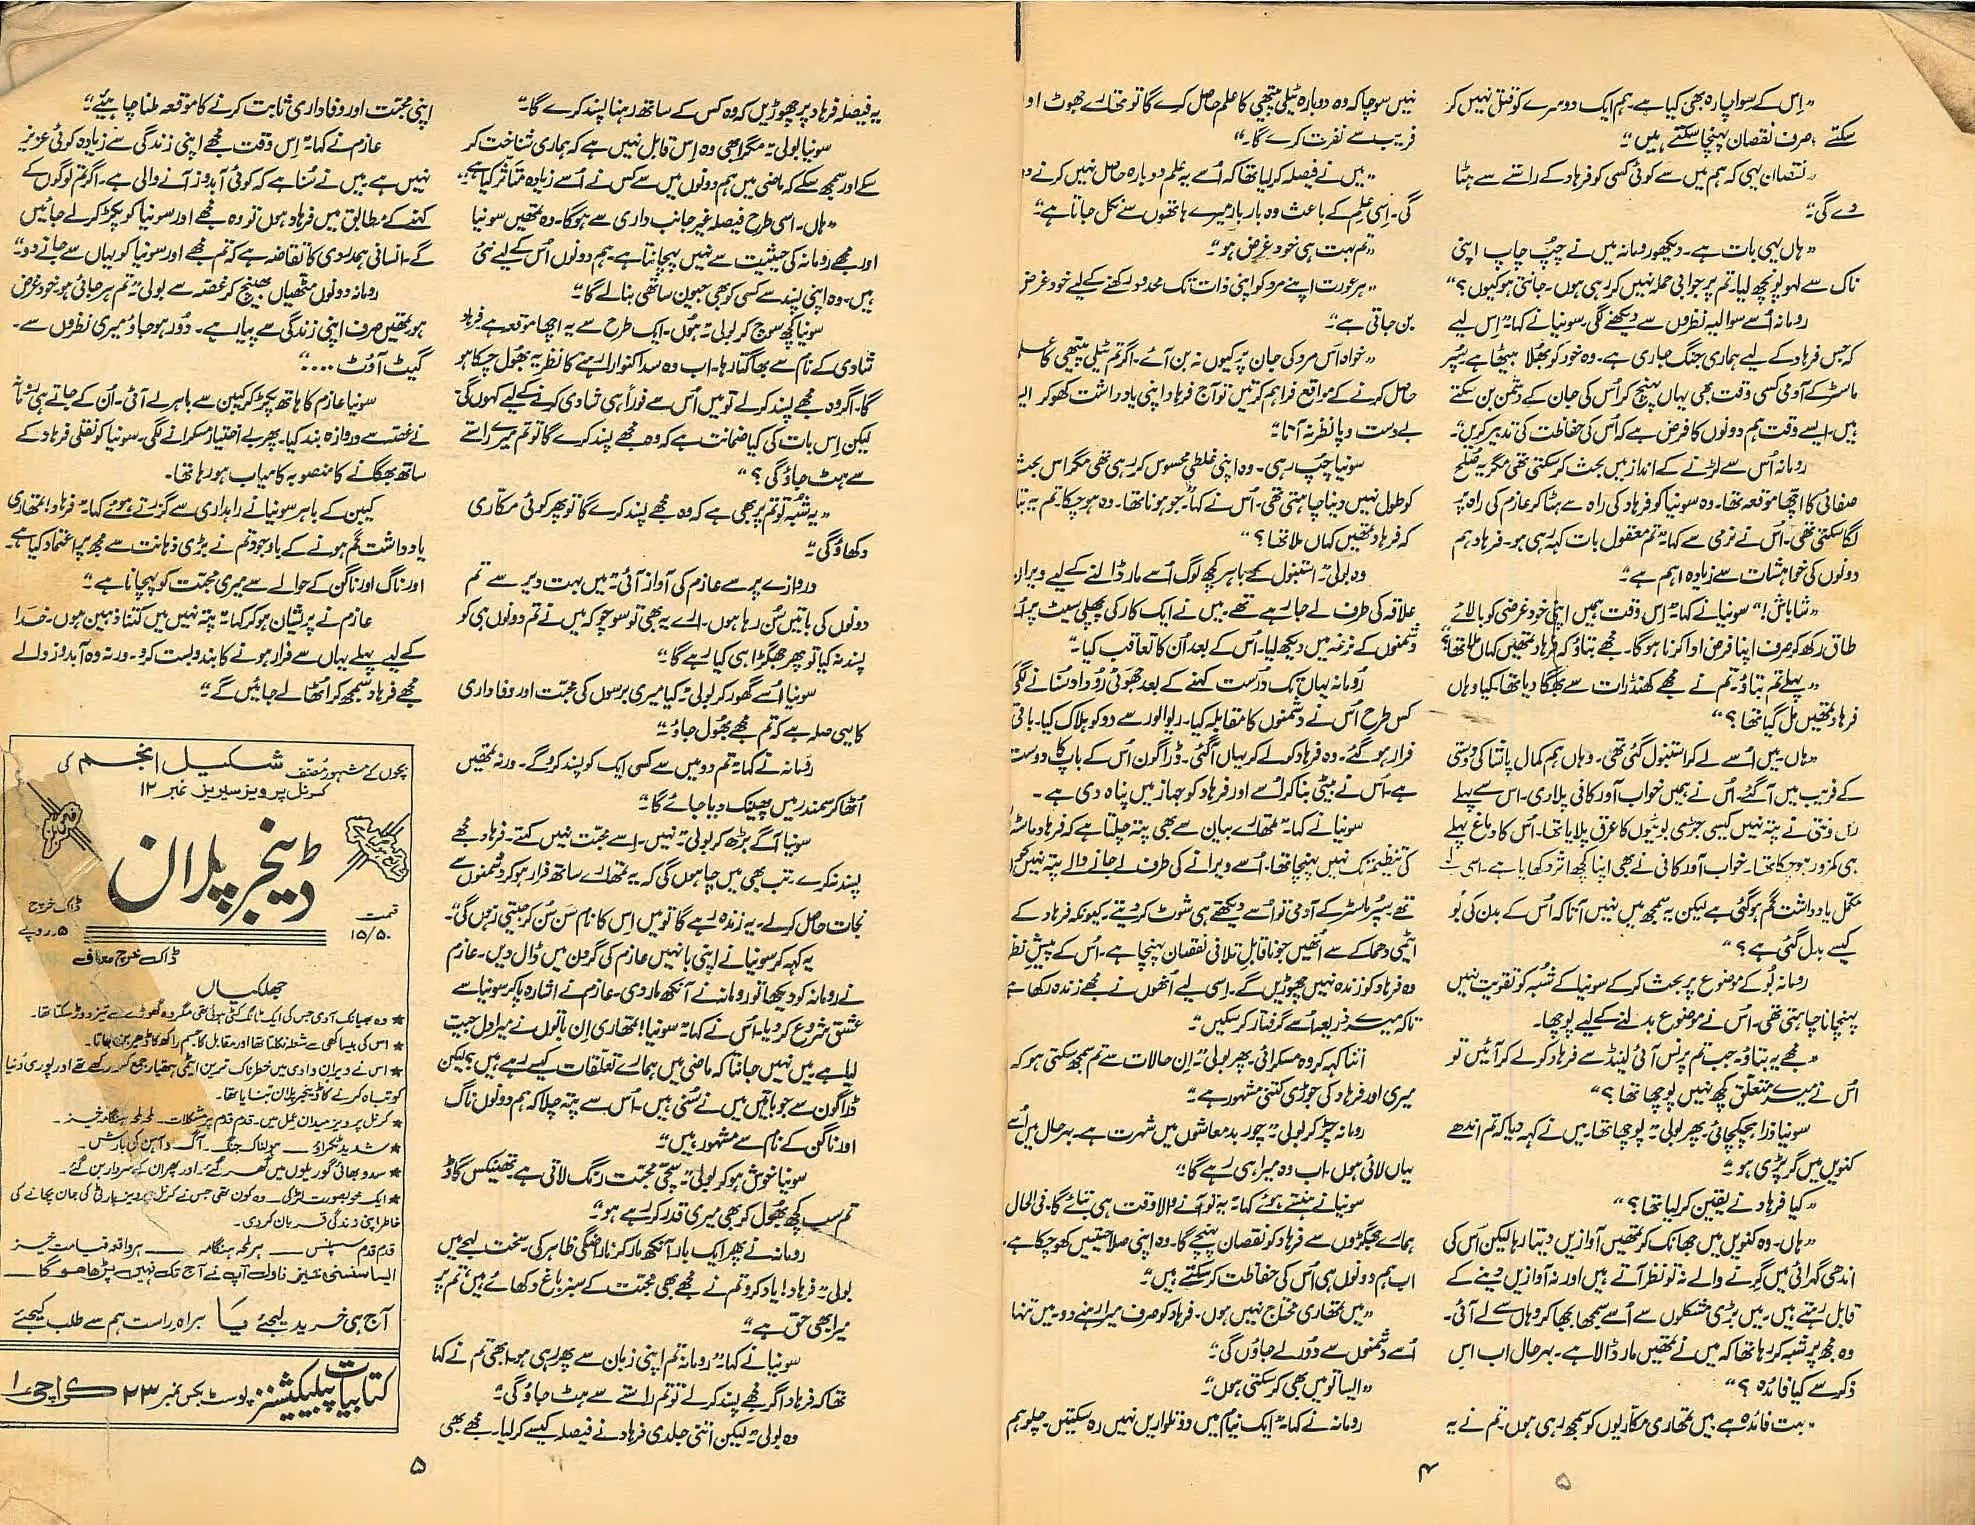 "اِس کے سوا چارہ بھی کیا ہے۔ ہم ایک دوسرے کو قتل نہیں کر
سکتے، صرف نقصان پہنچا سکتے ہیں"
"نقصان یہی کہ ہم میں سے کوئی کسی کو فرہاد کے راستے سے ہٹا
دے گی"
"ہاں یہی بات ہے۔ دیکھو رومانہ میں نے چپ چاپ اپنی
ناک سے لہو پونچھ لیا۔ تم پر جوابی حملہ نہیں کر رہی ہوں۔ جانتی ہو کیوں؟"
رومانہ اُسے سوالیہ نظروں سے دیکھنے لگی۔ سونیا نے کہا "اِس لیے
کہ جس فرہاد کے لیے ہماری جنگ جاری ہے۔ وہ خود کو بھلا بیٹھا ہے۔ سُپر
ماسٹر کے آدمی کسی وقت بھی یہاں پہنچ کر اُس کی جان کے دشمن بن سکتے
ہیں۔ ایسے وقت ہم دونوں کا فرض ہے کہ اُس کی حفاظت کی تدبیر کریں"
رومانہ اُس سے لڑنے کے انداز میں بحث کر سکتی تھی مگر یہ صُلح
صفائی کا اچھا موقعہ تھا۔ وہ سونیا کو فرہاد کی راہ سے ہٹا کر عازم کی راہ پر
لگا سکتی تھی۔ اُس نے نرمی سے کہا "تم معقول بات کہہ رہی ہو۔ فرہاد ہم
دونوں کی خواہشات سے زیادہ اہم ہے"
"شاباش!" سونیا نے کہا "اِس وقت ہمیں اپنی خود غرضی کو بالائے
طاق رکھ کر صرف اپنا فرض ادا کرنا ہوگا۔ مجھے بتاؤ کہ فرہاد تمھیں کہاں ملا تھا؟"
"پہلے تم بتاؤ۔ تم نے مجھے کھنڈرات سے بھگا دیا تھا۔ کیا وہاں
فرہاد تمھیں مل گیا تھا؟"
"ہاں۔ میں اُسے لے کر استنبول گئی تھی۔ وہاں ہم کمال پاشا کی دوستی
کے فریب میں آ گئے۔ اُس نے ہمیں خواب آور کافی پلا دی۔ اس سے پہلے
رس ونتی نے پتہ نہیں کیسی جڑی بوٹیوں کا عرق پلایا تھا۔ اُس کا دماغ پہلے
ہی کمزور ہو چکا تھا۔ خواب آور کافی نے بھی اپنا کچھ اثر دکھایا ہے۔ اسی لیے
مکمل یادداشت گم ہو گئی ہے لیکن یہ سمجھ میں نہیں آتا کہ اُس کے بدن کی بُو
کیسے بدل گئی ہے؟"
رومانہ بُو کے موضوع پر بحث کر کے سونیا کے شُبہ کو تقویت نہیں
پہنچانا چاہتی تھی۔ اُس نے موضوع بدلنے کے لیے پوچھا۔
"مجھے یہ بتاؤ۔ جب تم پرنس آئی لینڈ سے فرہاد کو لے کر آئیں تو
اُس نے میرے متعلق کچھ نہیں پوچھا تھا؟"
سونیا ذرا ہچکچائی۔ پھر بولی "پوچھا تھا۔ میں نے کہہ دیا کہ تم اندھے
کنویں میں گر پڑی ہو"
"کیا فرہاد نے یقین کر لیا تھا؟"
"ہاں۔ وہ کنویں میں جھانک کر تمھیں آوازیں دیتا رہا لیکن اُس کی
اندھی گہرائی میں گرنے والے نہ تو نظر آتے ہیں اور نہ آوازیں دینے کے
قابل رہتے ہیں۔ میں بڑی مشکلوں سے اُسے سمجھا بجھا کر وہاں سے لے آئی۔
وہ مجھ پر شبہ کر رہا تھا کہ میں نے تمھیں مار ڈالا ہے۔ بہرحال اب اس
ذکر سے کیا فائدہ؟"
"بہت فائدہ ہے۔ میں تمھاری مکاریوں کو سمجھ رہی ہوں۔ تم نے یہ
نہیں سوچا کہ وہ دوبارہ ٹیلی پیتھی کا علم حاصل کرے گا تو تمھارے جھوٹ او
فریب سے نفرت کرے گا۔"
"میں نے فیصلہ کر لیا تھا کہ اُسے یہ علم دوبارہ حاصل نہیں کرنے دو
گی۔ اِسی علم کے باعث وہ بار بار میرے ہاتھوں سے نکل جاتا ہے"
"تم بہت ہی خود غرض ہو"
"ہر عورت اپنے مرد کو اپنی ذات تک محدود رکھنے کے لیے خود غرض
بن جاتی ہے"
"خواہ اُس مرد کی جان پر کیوں نہ بن آئے۔ اگر تم ٹیلی پیتھی کا علم
حاصل کرنے کے مواقع فراہم کرتیں تو آج فرہاد اپنی یادداشت کھو کر ایسا
بے دست و پا نظر نہ آتا"
سونیا چپ رہی۔ وہ اپنی غلطی محسوس کر رہی تھی مگر اس بحث
کو طول نہیں دینا چاہتی تھی۔ اُس نے کہا "جو ہونا تھا۔ وہ ہو چکا۔ تم یہ بتا
کہ فرہاد تمھیں کہاں ملا تھا؟"
وہ بولی "استنبول کے باہر کچھ لوگ اُسے مار ڈالنے کے لیے ویران
علاقہ کی طرف لے جا رہے تھے۔ میں نے ایک کار کی پچھلی سیٹ پر اُسے
دشمنوں کے نرغہ میں دیکھ لیا۔ اُس کے بعد اُن کا تعاقب کیا"
رومانہ یہاں تک درست کہنے کے بعد جھوٹی روداد سنانے لگی
کس طرح اُس نے دشمنوں کا مقابلہ کیا۔ ریوالور سے دو کو ہلاک کیا۔ باقی
فرار ہو گئے۔ وہ فرہاد کو لے کر یہاں آ گئی۔ ڈراگون اُس کے باپ کا دوست
ہے۔ اُس نے بیٹی بنا کر اُسے اور فرہاد کو جہاز میں پناہ دی ہے۔
سونیا نے کہا "تمھارے بیان سے بھی پتہ چلتا ہے کہ فرہاد ماسٹر
کی تنظیم تک نہیں پہنچا تھا۔ اُسے ویرانے کی طرف لے جانے والے پتہ نہیں کون
تھے۔ سُپر ماسٹر کے آدمی تو اُسے دیکھتے ہی شوٹ کر دیتے۔ کیونکہ فرہاد کے
ایٹمی دھماکے سے اُنھیں جو ناقابلِ تلافی نقصان پہنچا ہے۔ اُس کے پیشِ نظر
وہ فرہاد کو زندہ نہیں چھوڑیں گے۔ اِسی لیے اُنھوں نے مجھے زندہ رکھا ہے
تاکہ میرے ذریعہ اُسے گرفتار کر سکیں"
اتنا کہہ کر وہ مسکرائی۔ پھر بولی "اِن حالات سے تم سمجھ سکتی ہو کہ
میری اور فرہاد کی جوڑی کتنی مشہور ہے"
رومانہ چڑ کر بولی "چور بدمعاشوں میں شہرت ہے۔ بہرحال میں اُسے
یہاں لائی ہوں۔ اب وہ میرا ہی رہے گا"
سونیا نے ہنستے ہوئے کہا "یہ تو آنے والا وقت ہی بتائے گا۔ فی الحال
ہمارے جھگڑوں سے فرہاد کو نقصان پہنچے گا۔ وہ اپنی صلاحیتیں کھو چکا ہے۔
اب ہم دونوں ہی اُس کی حفاظت کر سکتے ہیں"
"میں تمھاری محتاج نہیں ہوں۔ فرہاد کو صرف میرا رہنے دو۔ میں تنہا
اُسے دشمنوں سے دُور لے جاؤں گی"
"ایسا تو میں بھی کر سکتی ہوں"
رومانہ نے کہا "ایک نیام میں دو تلواریں نہیں رہ سکتیں۔ چلو ہم
۴
۵
یہ فیصلہ فرہاد پر چھوڑیں کہ وہ کس کے ساتھ رہنا پسند کرے گا"
سونیا بولی "مگر ابھی وہ اِس قابل نہیں ہے کہ ہماری شناخت کر
سکے اور سمجھ سکے کہ ماضی میں ہم دونوں میں سے کس نے اُسے زیادہ متاثر کیا ہے"
"ہاں۔ اسی طرح فیصلہ غیر جانب داری سے ہوگا۔ وہ تمھیں سونیا
اور مجھے رومانہ کی حیثیت سے نہیں پہچانتا ہے۔ ہم دونوں اُس کے لیے نئی
ہیں۔ وہ اپنی پسند سے کسی کو بھی جیون ساتھی بنا لے گا"
سونیا کچھ سوچ کر بولی "ہوں۔ ایک طرح سے یہ اچھا موقعہ ہے فرہاد
شادی کے نام سے بھاگتا رہا۔ اب وہ سدا کنوارا رہنے کا نظریہ بھول چکا ہو
گا۔ اگر وہ مجھے پسند کر لے تو میں اُس سے فوراً ہی شادی کرنے کے لیے کہوں گی
لیکن اِس بات کی کیا ضمانت ہے کہ وہ مجھے پسند کرے گا تو تم میرے راستے
سے ہٹ جاؤ گی؟"
"یہ شُبہ تو تم پر بھی ہے کہ وہ مجھے پسند کرے گا تو پھر کوئی مکاری
دکھاؤ گی"
دروازے پر سے عازم کی آواز آئی "میں بہت دیر سے تم
دونوں کی باتیں سُن رہا ہوں۔ ارے یہ بھی تو سوچو کہ میں نے تم دونوں ہی کو
پسند نہ کیا تو پھر جھگڑا ہی کیا رہے گا"
سونیا اُسے گھور کر بولی "کیا میری برسوں کی محبت اور وفاداری
کا یہی صلہ ہے کہ تم مجھے بھول جاؤ"
رومانہ نے کہا "تم دو میں سے کسی ایک کو پسند کرو گے۔ ورنہ تمھیں
اُٹھا کر سمندر میں پھینک دیا جائے گا"
سونیا آگے بڑھ کر بولی "نہیں۔ اسے محبت نہیں کہتے۔ فرہاد مجھے
پسند نہ کرے۔ تب بھی میں چاہوں گی کہ یہ تمھارے ساتھ فرار ہو کر دشمنوں سے
نجات حاصل کر لے۔ یہ زندہ رہے گا تو میں اِس کا نام سُن سُن کر جیتی رہوں گی"
یہ کہہ کر سونیا نے اپنی بانہیں عازم کی گردن میں ڈال دیں۔ عازم
نے رومانہ کو دیکھا تو رومانہ نے آنکھ مار دی۔ عازم نے اشارہ پا کر سونیا سے
عشق شروع کر دیا۔ اُس نے کہا "سونیا! تمھاری اِن باتوں نے میرا دل جیت
لیا ہے۔ میں نہیں جانتا کہ ماضی میں ہمارے تعلقات کیسے رہے ہیں؟ لیکن
ڈراگون سے جو باتیں میں نے سُنی ہیں۔ اُس سے پتہ چلا کہ ہم دونوں ناگ
اور ناگن کے نام سے مشہور ہیں"
سونیا خوش ہو کر بولی "سچی محبت رنگ لاتی ہے۔ تھینکس گاڈ
تم سب کچھ بھول کر بھی میری قدر کر رہے ہو"
رومانہ نے پھر ایک بار آنکھ مار کر ناراضگی ظاہر کی۔ سخت لہجے میں
بولی "فرہاد! یاد کرو تم نے مجھے بھی محبت کے سبز باغ دکھائے ہیں تم پر
میرا بھی حق ہے"
سونیا نے کہا "رومانہ تم اپنی زبان سے پھر رہی ہو۔ ابھی تم نے کہا
تھا کہ فرہاد اگر مجھے پسند کر لے تو تم راستے سے ہٹ جاؤ گی"
وہ بولی "لیکن اتنی جلدی فرہاد نے فیصلہ کیسے کر لیا۔ مجھے بھی
اپنی محبت اور وفاداری ثابت کرنے کا موقعہ ملنا چاہیے"
عازم نے کہا "اِس وقت مجھے اپنی زندگی سے زیادہ کوئی عزیز
نہیں ہے۔ میں نے سُنا ہے کہ کوئی آبدوز آنے والی ہے۔ اگر تم لوگوں کے
کہنے کے مطابق میں فرہاد ہوں تو وہ مجھے اور سونیا کو پکڑ کر لے جائیں
گے۔ انسانی ہمدردی کا تقاضہ ہے کہ تم مجھے اور سونیا کو یہاں سے جانے دو"
رومانہ دونوں مٹھیاں بھینچ کر غصہ سے بولی "تم ہرجائی ہو۔ خود غرض
ہو۔ تمھیں صرف اپنی زندگی سے پیار ہے۔ دُور ہو جاؤ میری نظروں سے۔
گیٹ آؤٹ ...."
سونیا عازم کا ہاتھ پکڑ کر کیبن سے باہر لے آئی۔ اُن کے جاتے ہی رومانہ
نے غصہ سے دروازہ بند کیا۔ پھر بے اختیار مسکرانے لگی۔ سونیا کو نقلی فرہاد کے
ساتھ بھگانے کا منصوبہ کامیاب ہو رہا تھا۔
کیبن کے باہر سونیا نے راہداری سے گزرتے ہوئے کہا "فرہاد! تمھاری
یادداشت گم ہونے کے باوجود تم نے بڑی ذہانت سے مجھ پر اعتماد کیا ہے۔
اور ناگ اور ناگن کے حوالے سے میری محبت کو پہچانا ہے"
عازم نے پریشان ہو کر کہا "پتہ نہیں میں کتنا ذہین ہوں۔ خدا
کے لیے پہلے یہاں سے فرار ہونے کا بندوبست کرو۔ ورنہ وہ آبدوز والے
مجھے فرہاد سمجھ کر اُٹھا لے جائیں گے"
بچوں کے مشہور مُصنف شکیل انجم کی
کرنل پرویز سیریز نمبر ۱۲
ڈینجر پلان
قیمت
۱۵/۵۰
ڈاک خرچ
۵ روپے
ڈاک خرچ معاف
جھلکیاں
★ وہ بھیانک آدمی جس کی ایک ٹانگ کٹی ہوئی تھی مگر وہ گھوڑے سے تیز دوڑ سکتا تھا۔
★ اس کی بیساکھی سے شعلہ نکلتا تھا اور مقابل کا جسم راکھ کا ڈھیر بن جاتا۔
★ اس نے ویران وادی میں خطرناک ترین ایٹمی ہتھیار جمع کر رکھے تھے اور پوری دُنیا
کو تباہ کرنے کا ڈینجر پلان بنایا تھا۔
★ کرنل پرویز میدانِ عمل میں۔ قدم قدم پر مشکلات۔ لمحہ لمحہ ہنگامہ خیز۔
★ شدید ٹکراؤ — ہولناک جنگ۔ آگ و آہن کی بارش۔
★ سدو بھائی گوریلوں میں گھر گئے۔ اور پھر ان کے سردار بن گئے۔
★ ایک خوبصورت لڑکی — وہ کون تھی جس نے کرنل پرویز پارٹی کی جان بچانے کی
خاطر اپنی زندگی قربان کر دی۔
قدم قدم سسپنس — ہر لمحہ ہنگامہ — ہر واقعہ قیامت خیز
ایسا سنسنی خیز ناول آپ نے آج تک نہیں پڑھا ہوگا —
آج ہی خرید لیجئے یا براہِ راست ہم سے طلب کیجئے
کتابیات پبلیکیشنز پوسٹ بکس نمبر ۲۳ کراچی ۱
۵